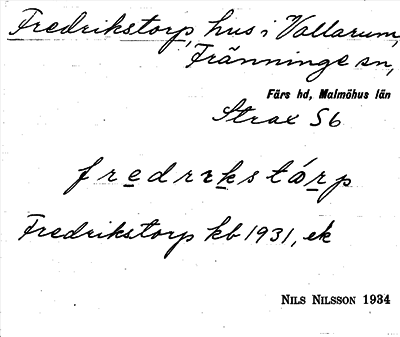 Fredrikstorp, hus i Vallarum,
Tränninge sn,
Färs hd, Malmöhus län
Strax S 6
fredrɩkstárp
Fredrikstorp kb 1931, ek
NILS NILSSON 1934